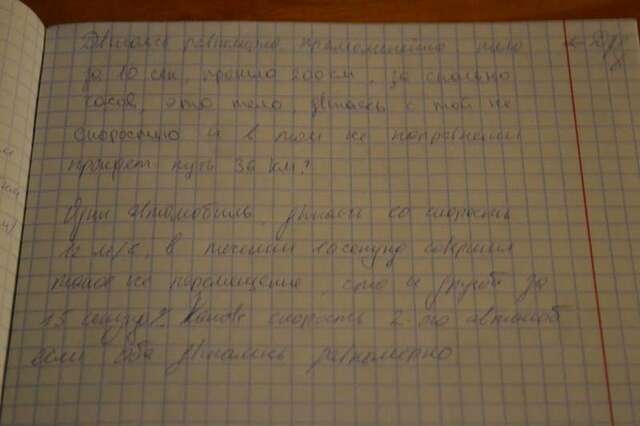 Двигаясь равномерно прямолинейно тело
за 10 сек, прошло 200 см, за сколько
часов, это тело, двигаясь с той же
скоростью и в том же направлении
пройдет путь 36 км?
Один автомобиль, двигаясь со скорость
12 м/с, в течении 10 секунд совершил
такое же перемещение, что и другой за
15 секунд. Какова скорость 2-го автомоб
если оба двигались равномерно
← Д/з